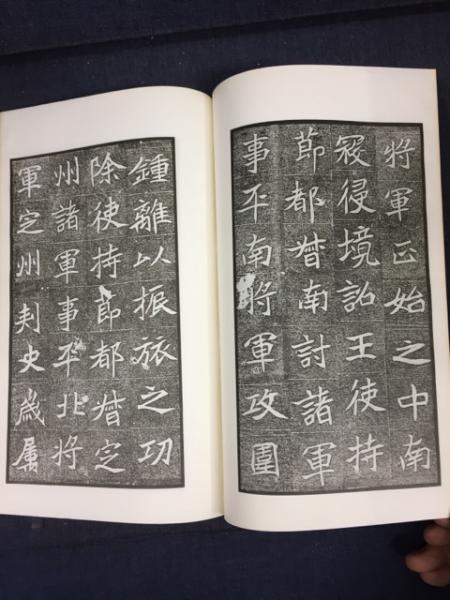 將軍正始之中南
寇侵境詔王使持
節都督南討諸軍
事平南將軍攻圍
鍾離以振旅之功
除使持節都督定
州諸軍事平北將
軍定州刺史歲屬